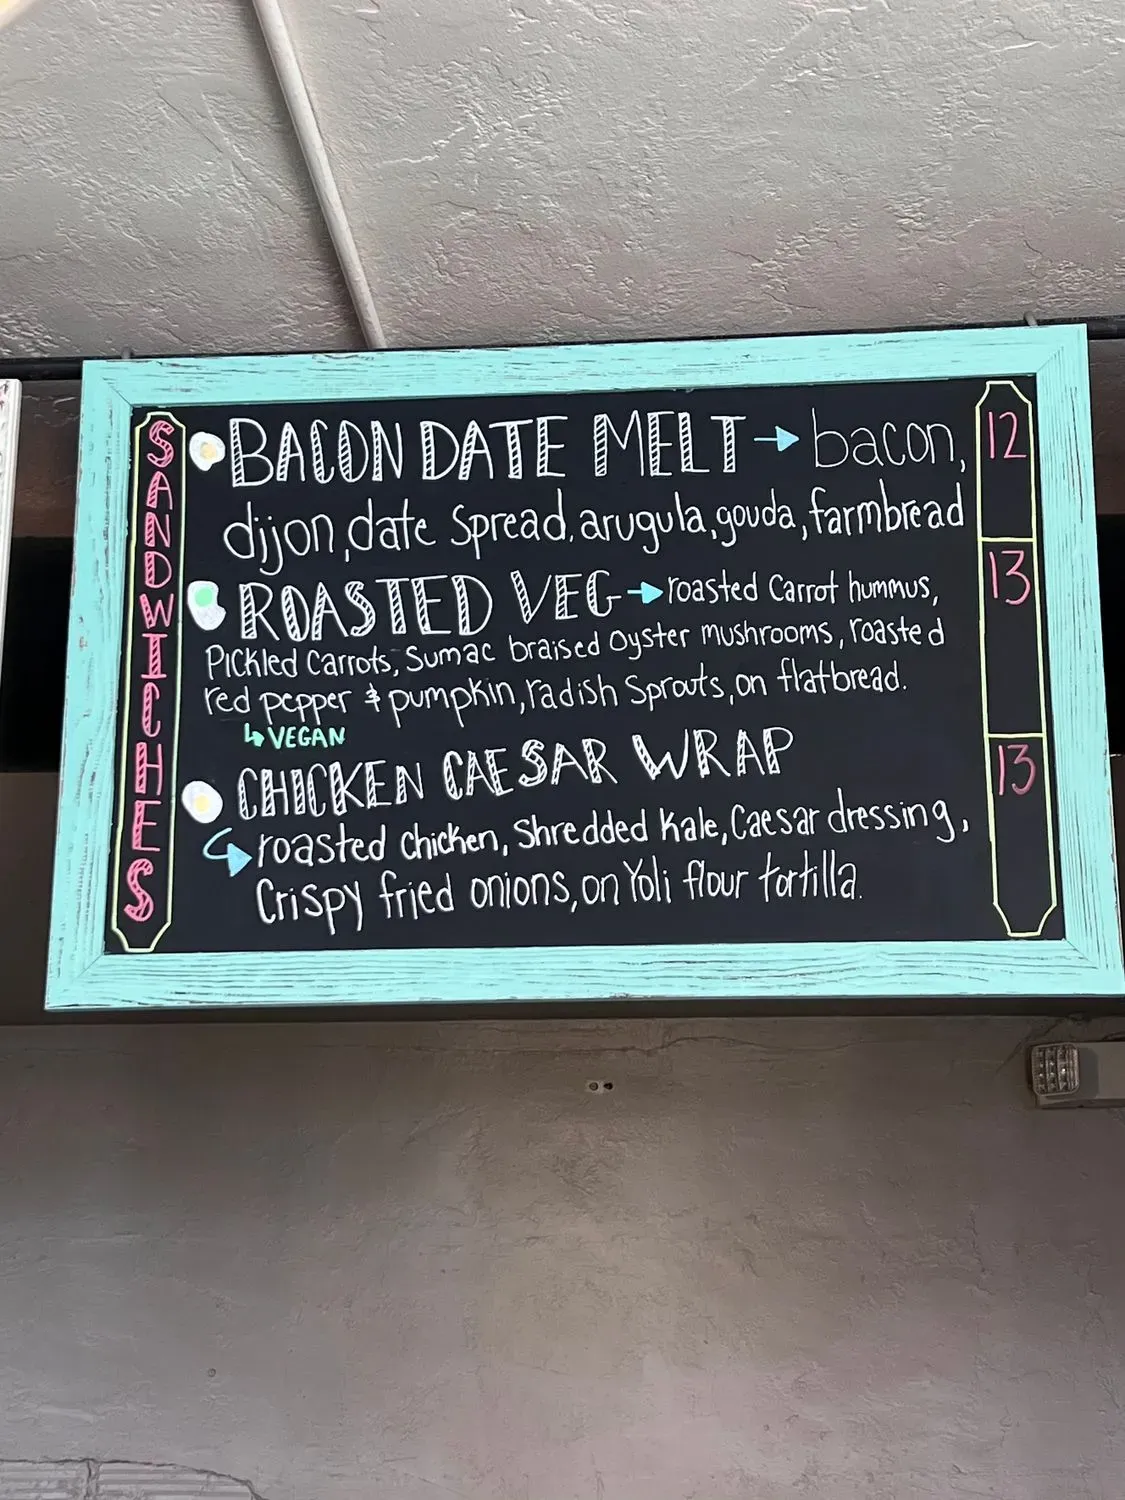 SANDWICHES
BACON DATE MELT → bacon, 12
dijon, date spread, arugula, gouda, farmbread
ROASTED VEG → roasted Carrot hummus, 13
Pickled Carrots, Sumac braised oyster mushrooms, roasted
red pepper & pumpkin, radish Sprouts, on flatbread.
↳ VEGAN
CHICKEN CAESAR WRAP 13
roasted chicken, Shredded Kale, Caesar dressing,
Crispy fried onions, on Yoli flour tortilla.